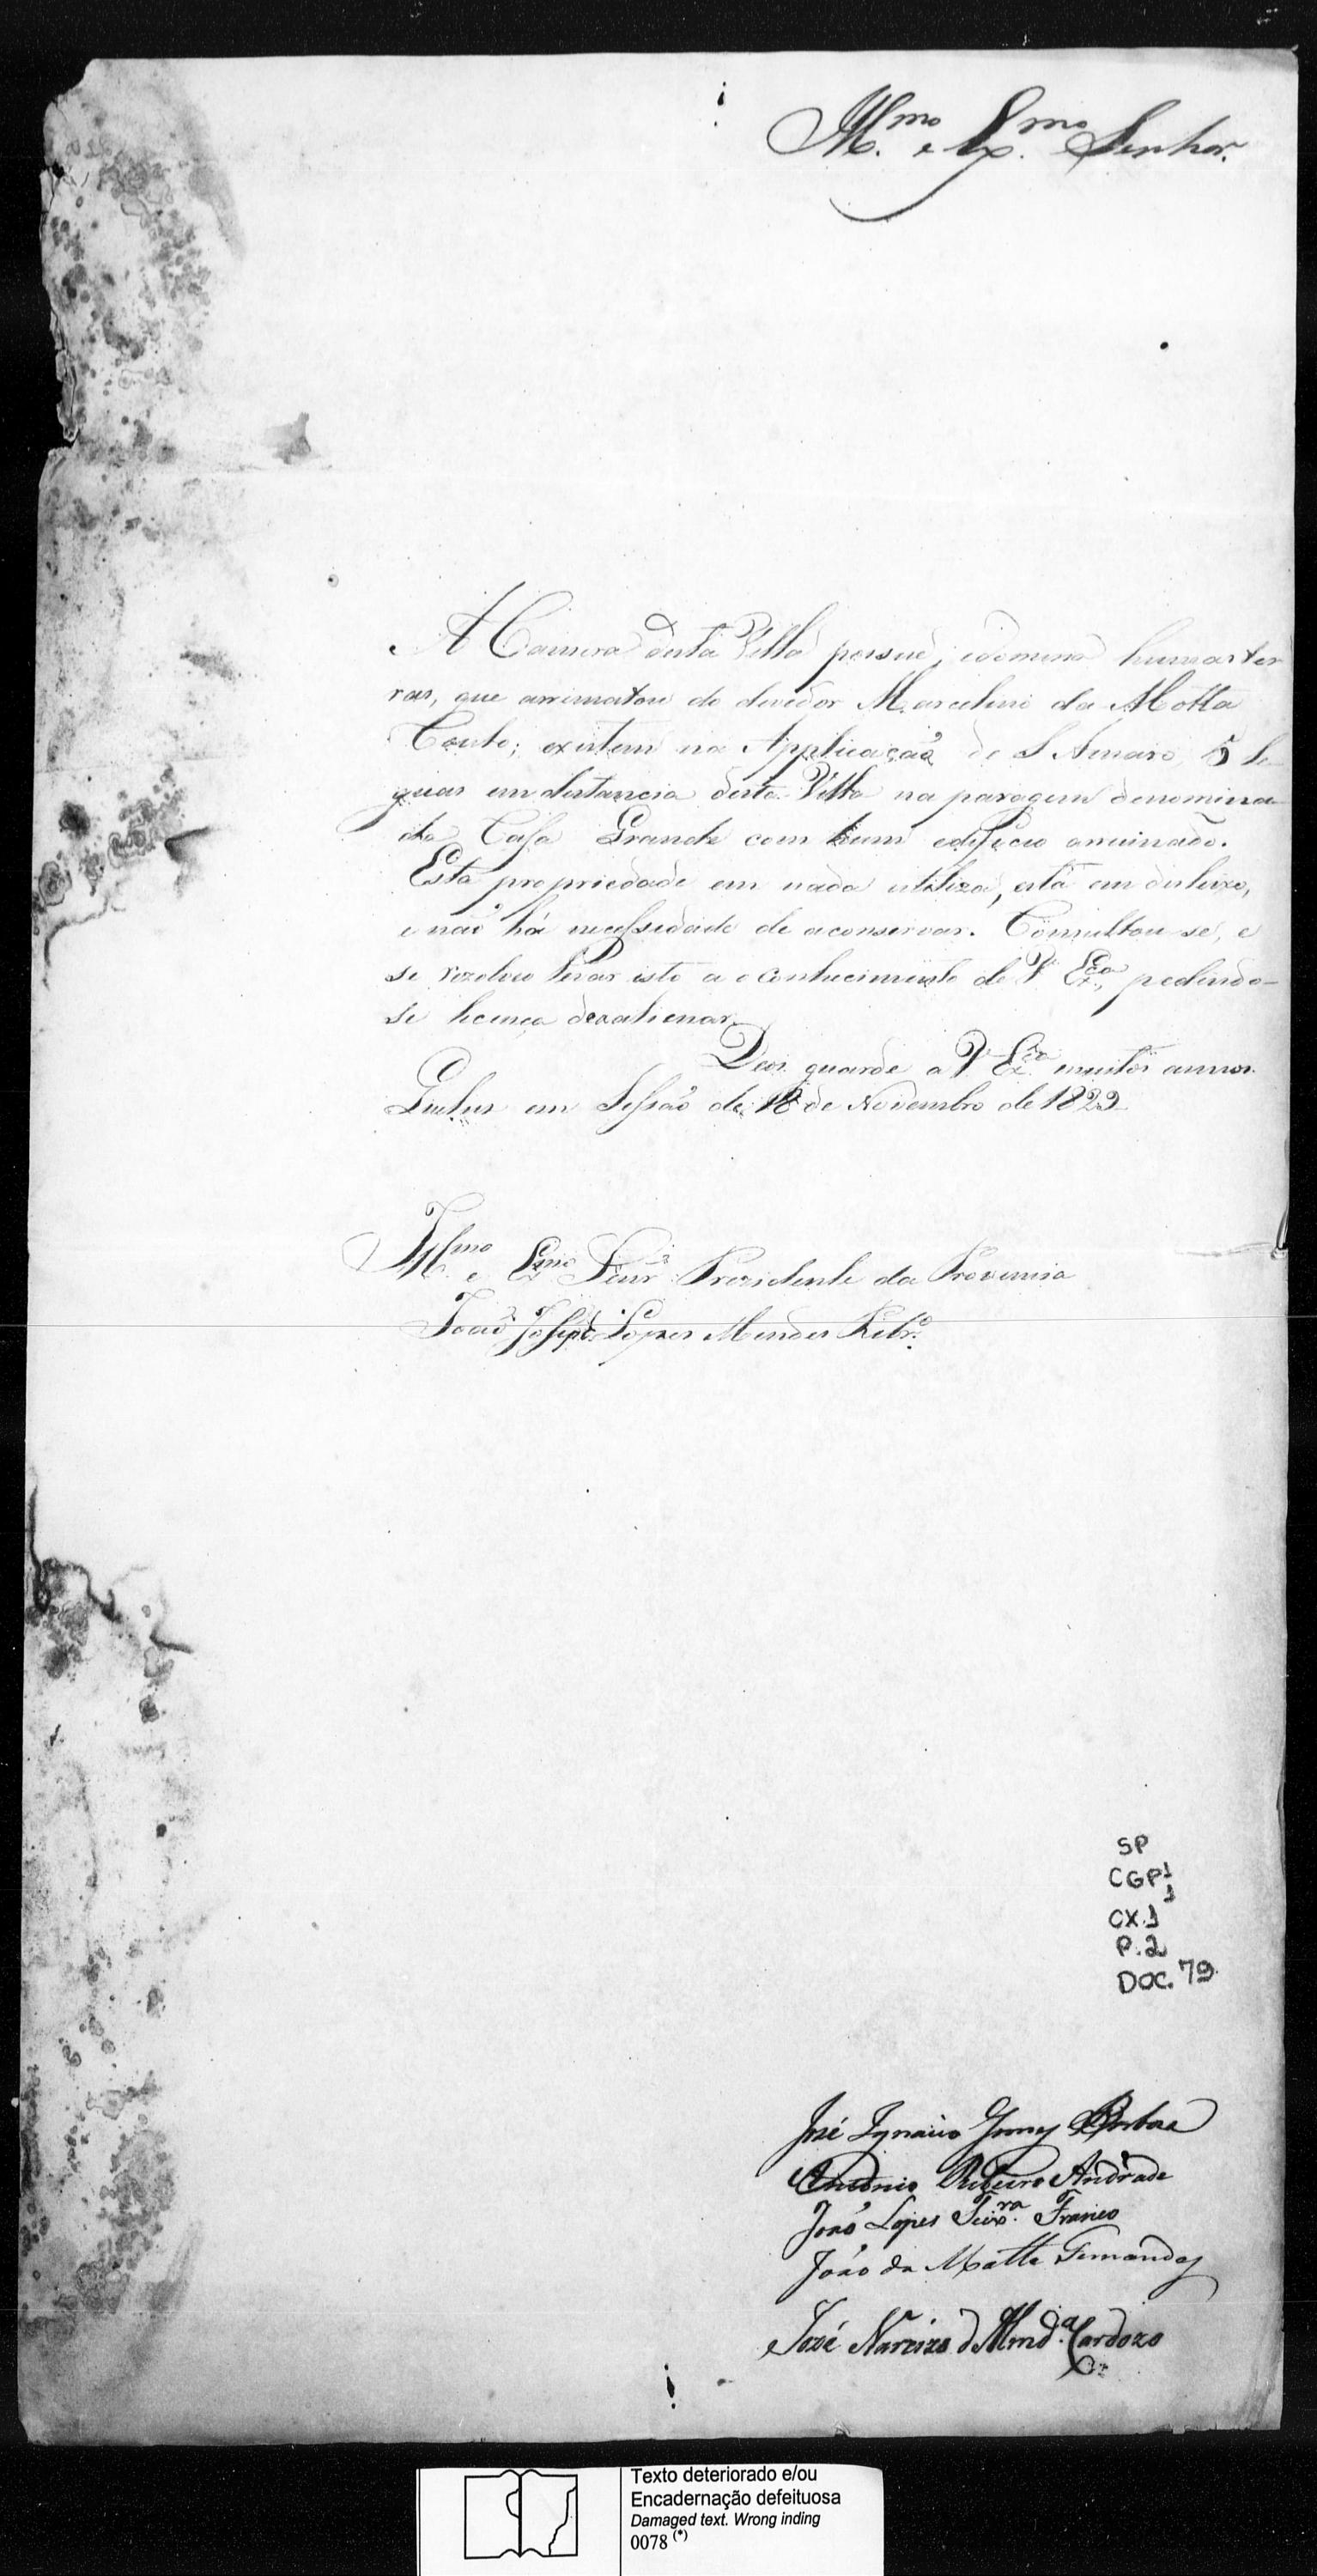 Ill.mo e Ex.mo Senhor.
A Camera desta Villa possue, e domina humas ter
ras, que arrimatou do devedor Marcelino da Motta
Couto; existem na Applicação de S Amaro, 5 le
guas em distancia desta Villa na paragem denomina
da Casa Grande com hum edificio arruinado.
Esta propriedade em nada utiliza, está em duleixo,
e não há necessidade de a conservar. Comsultou-se, e
se rezolveo levar isto a o conhecimento de V. Ex.ca, pedindo-
se licença de a alienar.
Deos guarde a V. Ex.ca muitos annos.
Queluz em Sessão de 18 de Novembro de 1829
Ill.mo e Ex.mo Senr. Prezidente da Provincia
João José Lopes Mendes Ribr.o
SP
CGP1
1
CX.1
P.2
DOC. 79
José Ignacio Gomes Barboza
Antonio Ribeiro Andrade
João Lopes Teix.ra Franco
João da Matta Fernandes
José Narcizo d'Almd.a Cardozo
Texto deteriorado e/ou
Encadernação defeituosa
Damaged text. Wrong inding
0078 (*)